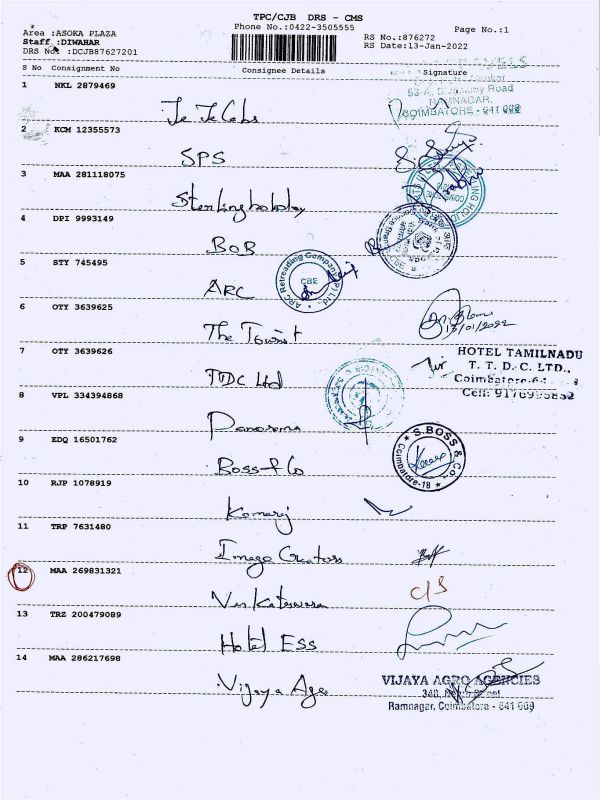 TPC/CJB DRS - CMS
Phone No.:0422-3505555 Page No.:1
Area :ASOKA PLAZA
Staff :DIWAHAR
DRS No. :DCJB87627201
RS No.:876272
RS Date:13-Jan-2022
S No Consignment No Consignee Details Signature
1 NKL 2879469
53-A,
Road
RAMNAGAR,
COIMBATORE - 641 009
Je Je Cabs
2 KCM 12355573
SPS
3 MAA 281118075
Sterling holiday
4 DPI 9993149
BOB
5 STY 745495
ARC
ARC Retreading Company (P) Ltd.,
CBE
6 OTY 3639625
The Tourist
13/01/2022
7 OTY 3639626
HOTEL TAMILNADU
T. T. D. C. LTD.,
Coimbatore-64
Cell: 9176995832
TTDC Ltd
8 VPL 334394868
Panorama
9 EDQ 16501762
S.BOSS & Co.
Coimbatore-18
Boss & Co
10 RJP 1078919
Kamaraj
11 TRP 7631480
Imago Creators
12 MAA 269831321
C/S
Venkateswara
13 TRZ 200479089
Hotel ESS
14 MAA 286217698
VIJAYA AGRO AGENCIES
348, Street
Ramnagar, Coimbatore - 641 009
Vijaya Agro